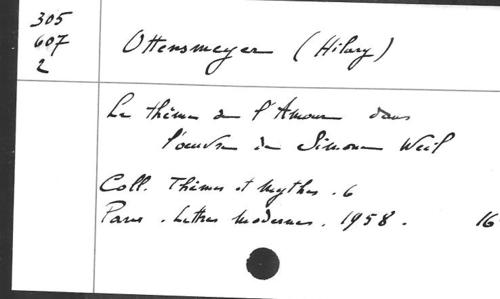 305
607
2
Ottensmeyer (Hilary)
Le thème de l'Amour dans
l'oeuvre de Simone Weil
Coll. Thèmes et Mythes. 6
Paris. Lettres Modernes. 1958. 16